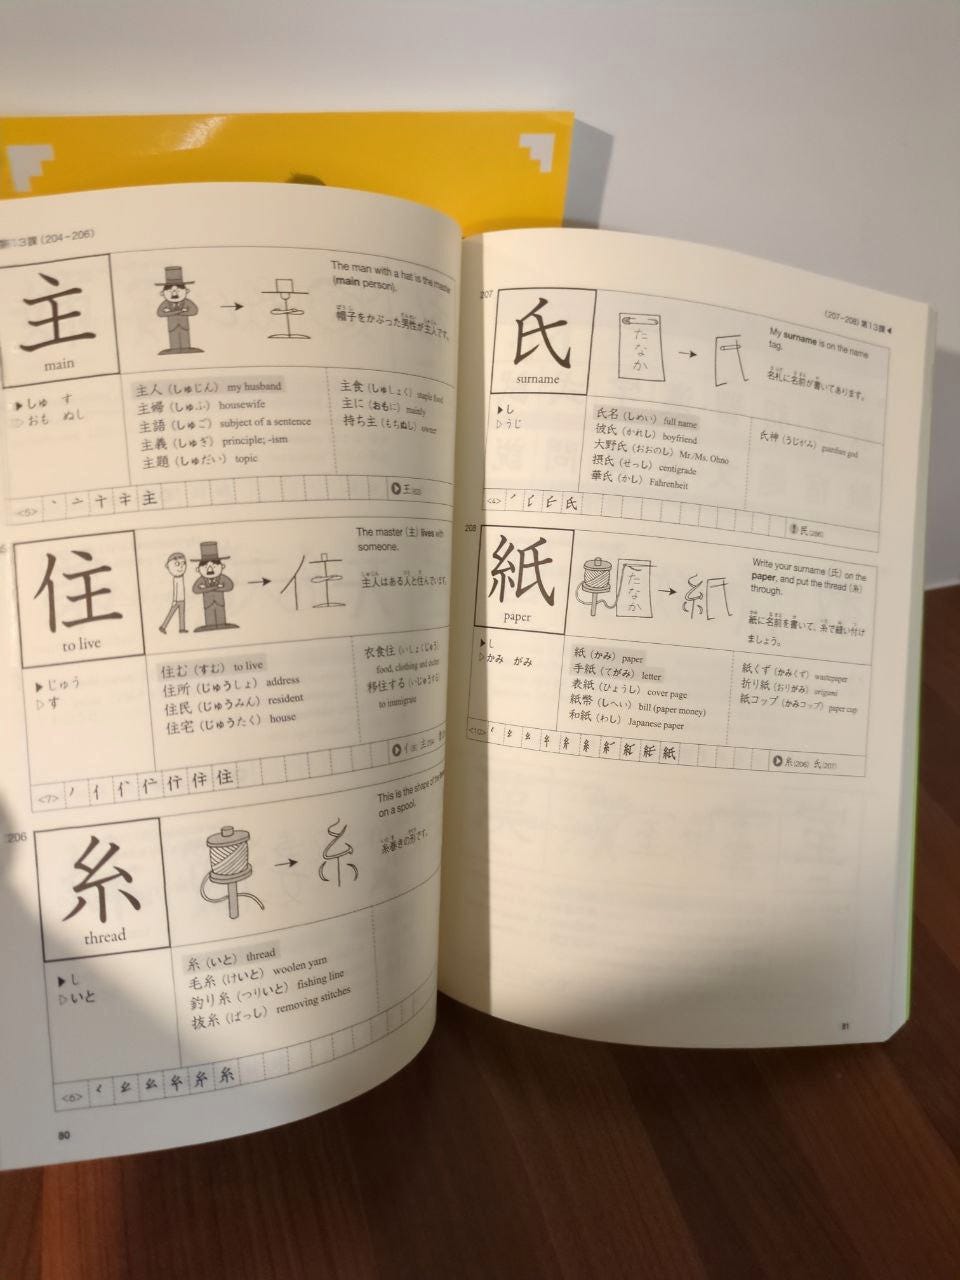 3課 (204-206)
主
main
The man with a hat is the
(main person).
帽子をかぶった男性が主人です。
▶しゅ す
▷おも ぬし
主人（しゅじん） my husband
主婦（しゅふ） housewife
主語（しゅご） subject of a sentence
主義（しゅぎ） principle; -ism
主題（しゅだい） topic
主食（しゅしょく） staple food
主に（おもに） mainly
持ち主（もちぬし） owner
<5>
主
王
住
to live
The master（主）lives with
someone.
主人はある人と住んでいます。
▶じゅう
▷す
住む（すむ） to live
住所（じゅうしょ） address
住民（じゅうみん） resident
住宅（じゅうたく） house
衣食住（いしょくじゅう）
food, clothing and
移住する（いじゅうする）
to immigrate
<7>
住
主
206
糸
thread
This is the shape of the
on a spool.
糸巻きの形です。
▶し
▷いと
糸（いと） thread
毛糸（けいと） woolen yarn
釣り糸（つりいと） fishing line
抜糸（ばっし） removing stitches
<6>
糸
80
(207-208) 第13課◀
207
氏
surname
たなか
My surname is on the name
tag.
名札に名前が書いてあります。
▶し
▷うじ
氏名（しめい） full name
彼氏（かれし） boyfriend
大野氏（おおのし） Mr./Ms. Ohno
摂氏（せっし） centigrade
華氏（かし） Fahrenheit
氏神（うじがみ） guardian god
<4>
氏
民(286)
208
紙
paper
たなか
Write your surname（氏）on the
paper, and put the thread（糸）
through.
紙に名前を書いて、糸で縫い付け
ましょう。
▶し
▷かみ がみ
紙（かみ） paper
手紙（てがみ） letter
表紙（ひょうし） cover page
紙幣（しへい） bill (paper money)
和紙（わし） Japanese paper
紙くず（かみくず） wastepaper
折り紙（おりがみ） origami
紙コップ（かみコップ） paper cup
<10>
紙
糸(206) 氏(207)
81